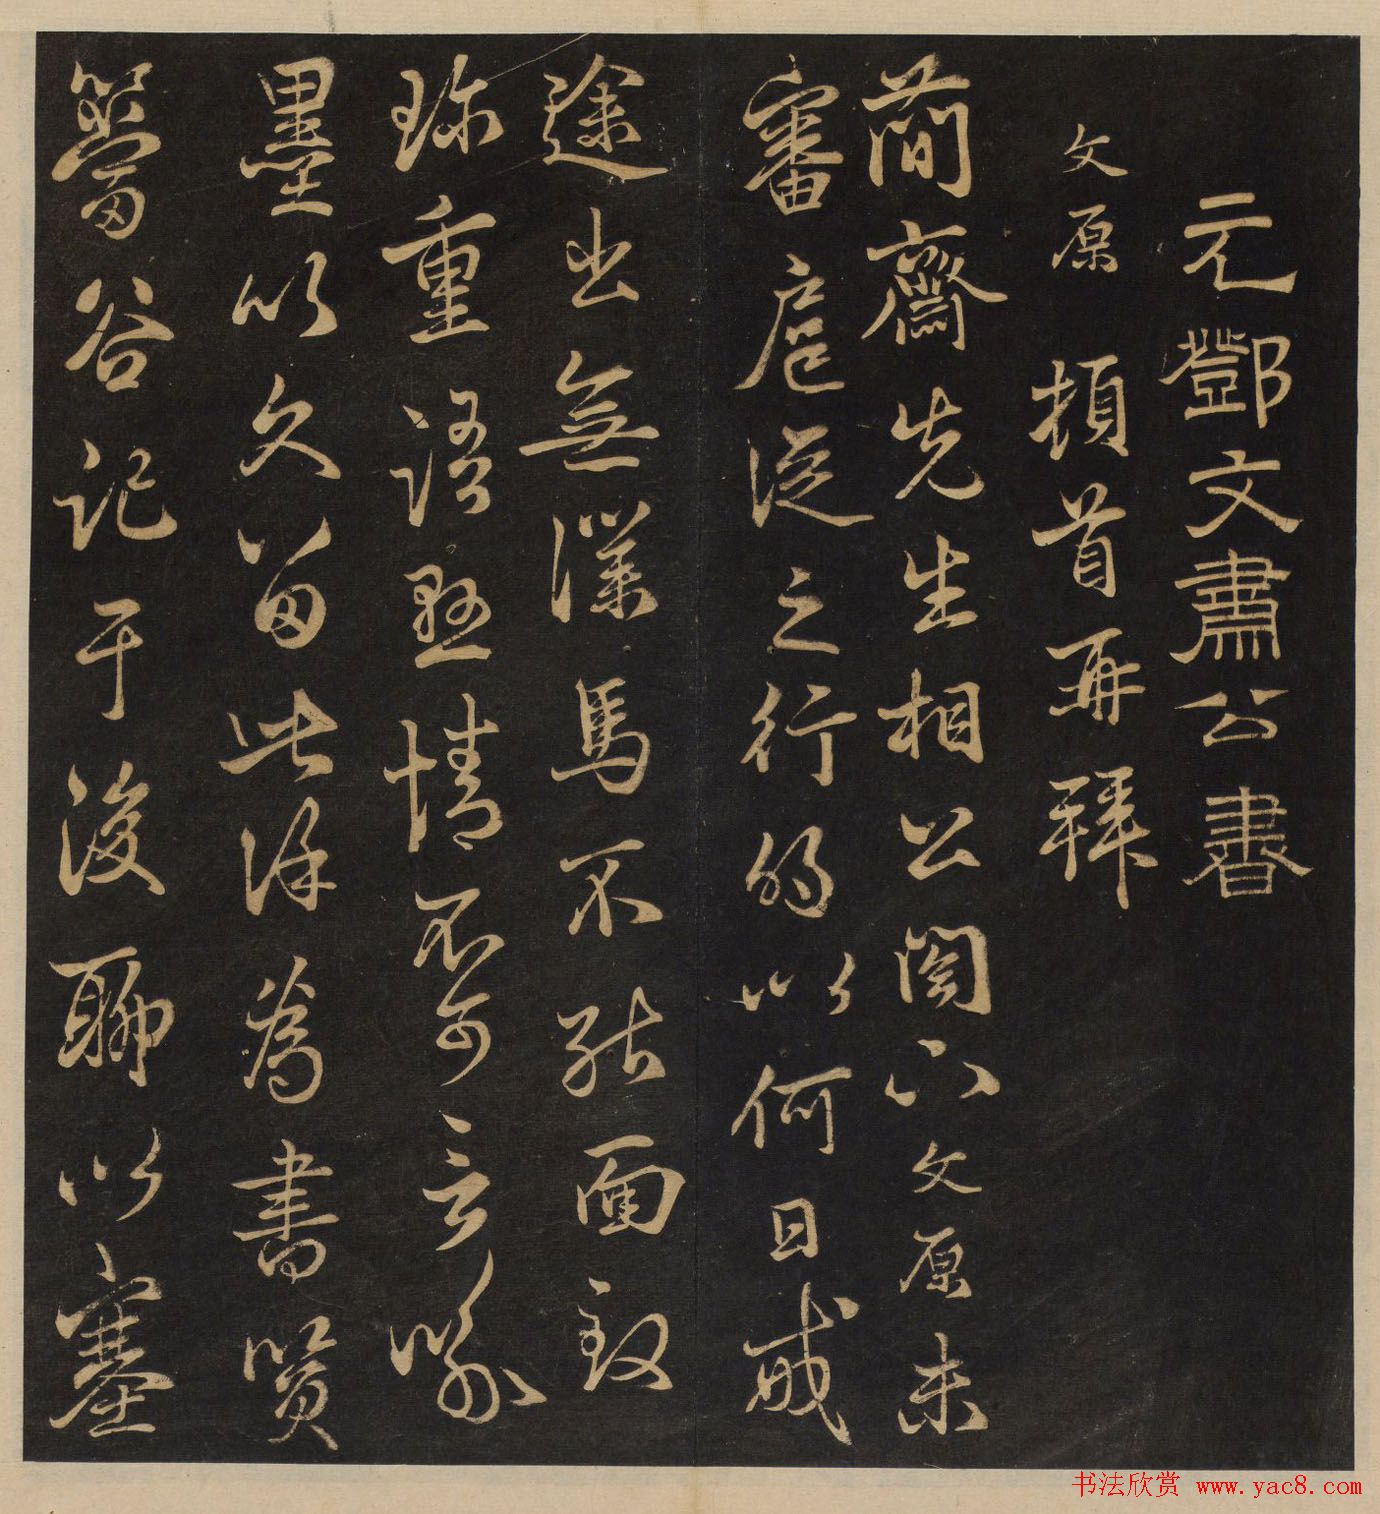 元鄧文肅公書
文原頓首再拜
簡齋先生相公閣下文原未
審扈從之行的以何日戒
途出無僕馬不能面致
珍重語別情不可言喻
墨以久留此謹為書賢
簹谷記于後聊以塞
书法欣赏 www.yac8.com